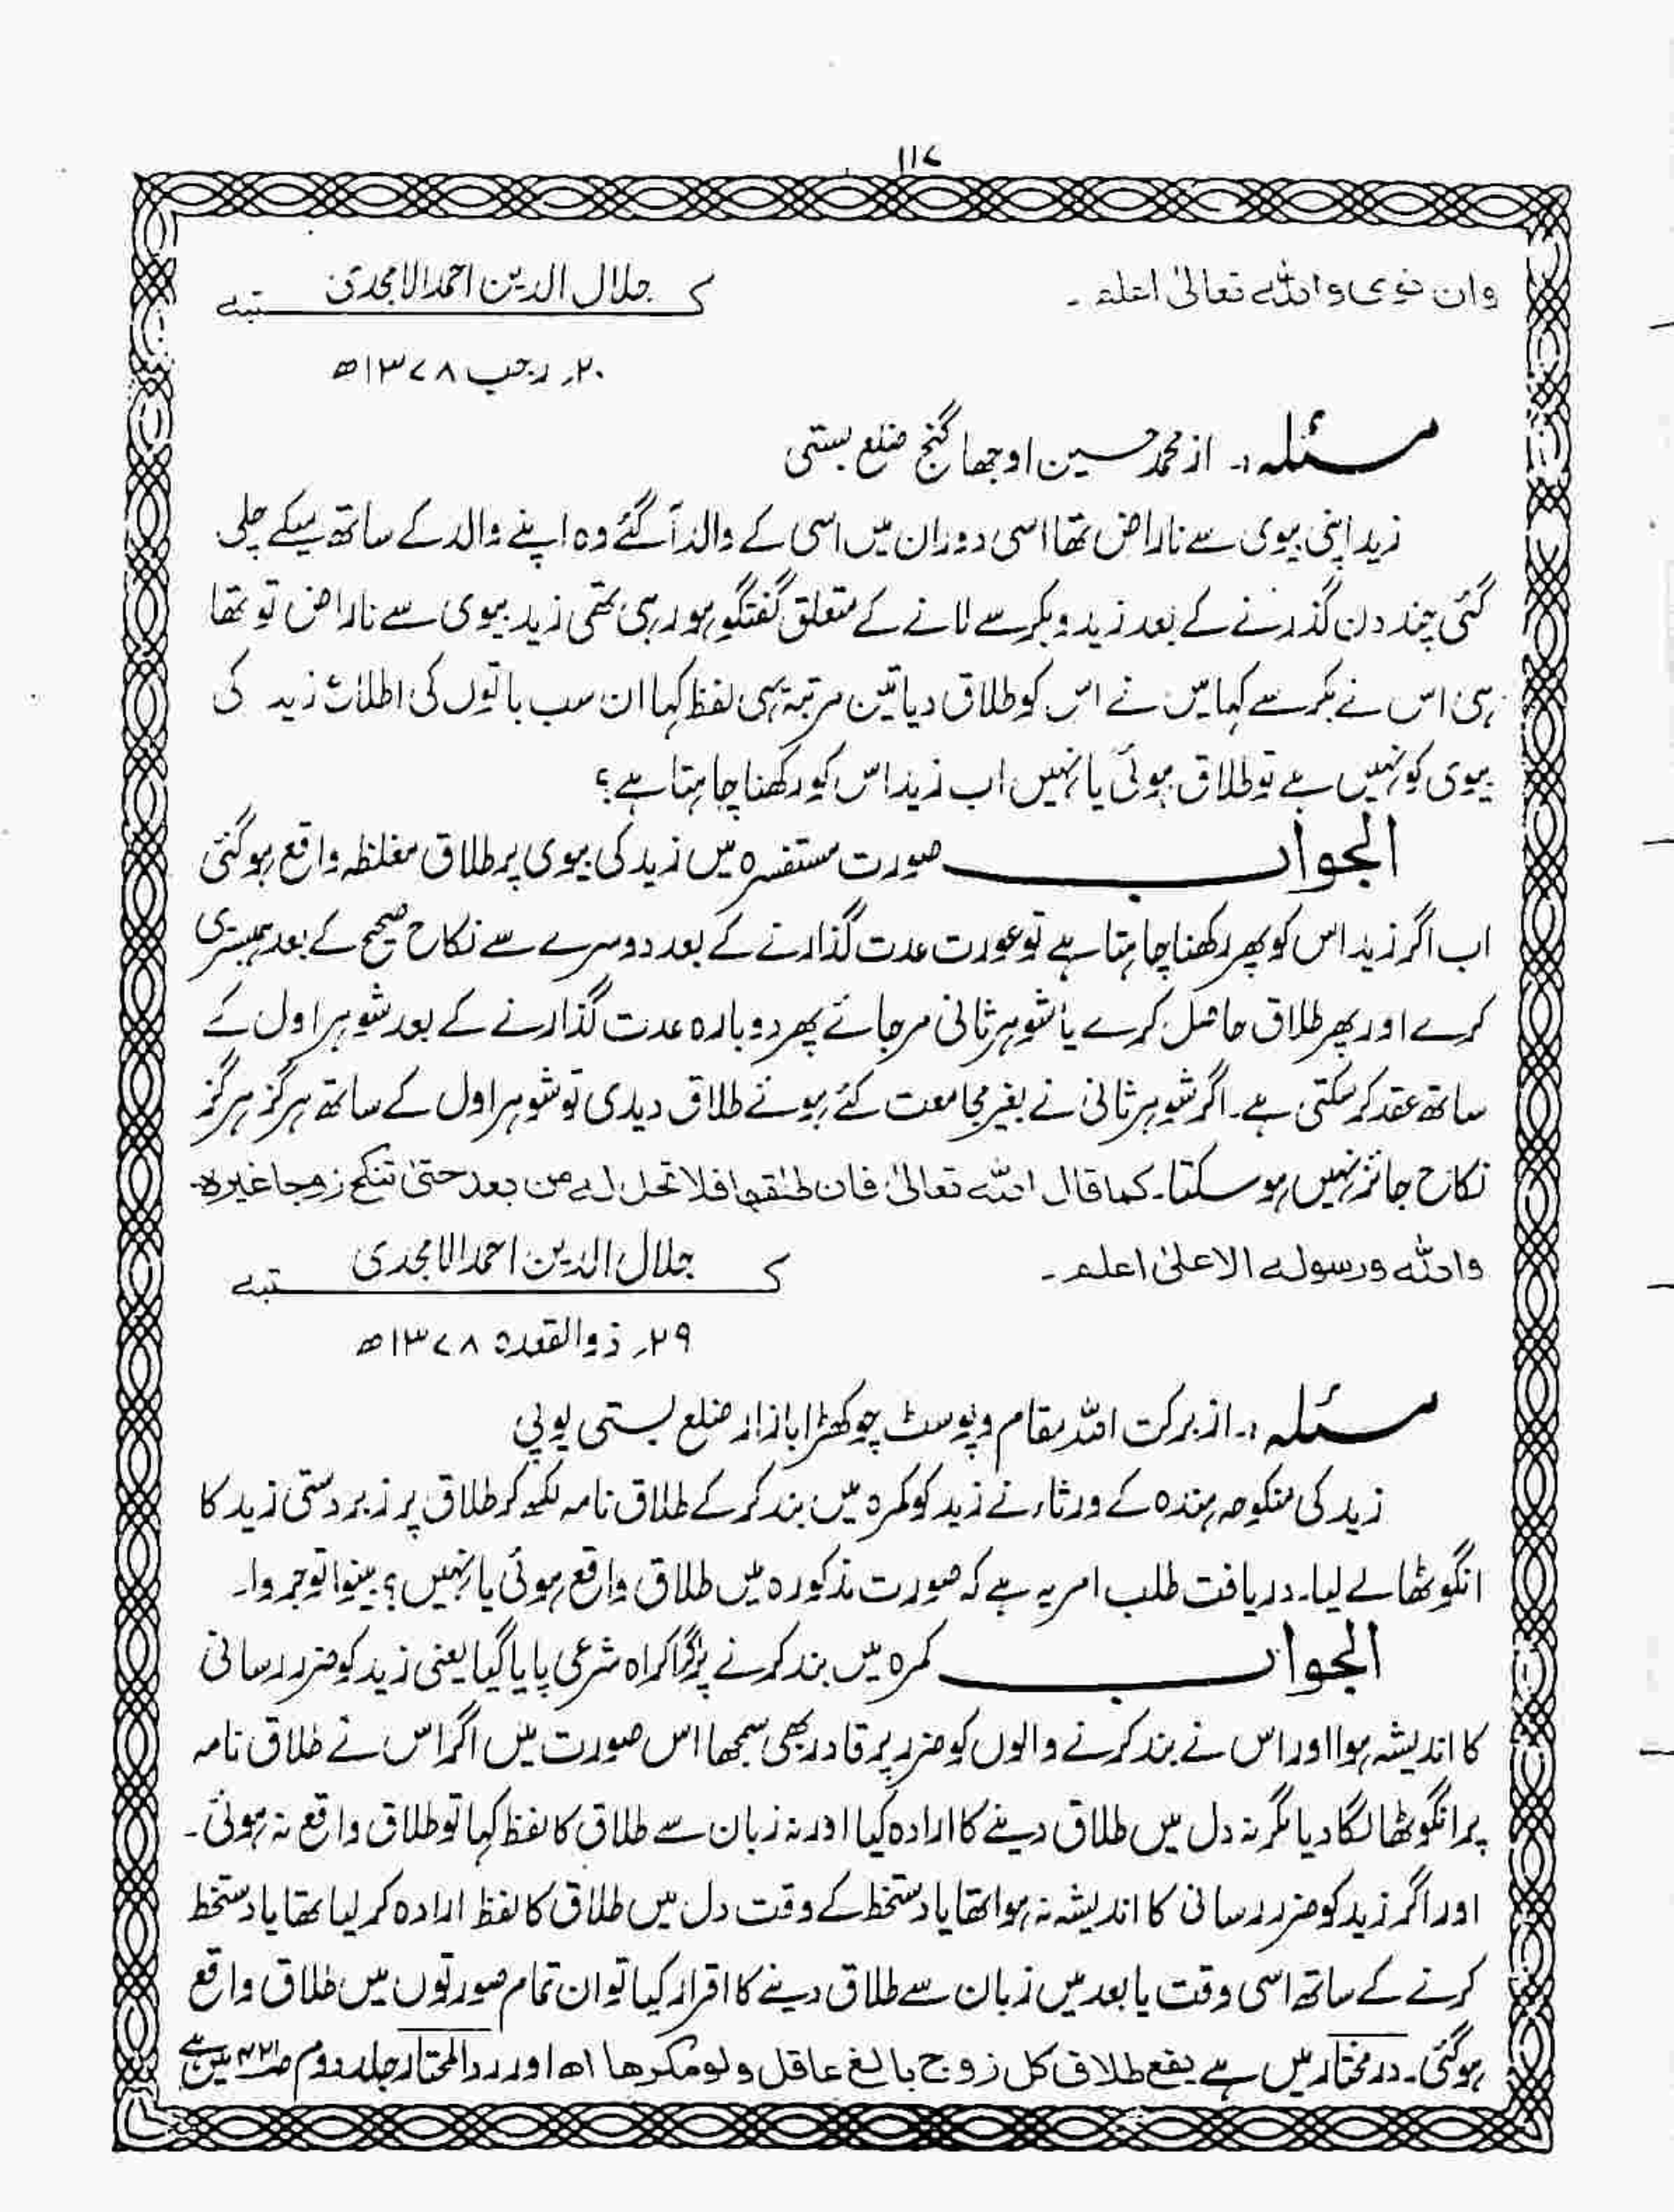 ۱۱۷
وان نوی واللہ تعالیٰ اعلم۔
کتبہ جلال الدین احمد الامجدی
۲۰؍ رجب ۱۳۷۸ھ
مسئلہ:۔ از محمد حسین اوجھا گنج ضلع بستی
زید اپنی بیوی سے ناراض تھا اسی دوران میں اسی کے والد آگئے وہ اپنے والد کے ساتھ میکے چلی
گئی چند دن گذرنے کے بعد زید و بکر سے لانے کے متعلق گفتگو ہو رہی تھی زید بیوی سے ناراض تو تھا
ہی اس نے بکر سے کہا میں نے اس کو طلاق دیا تین مرتبہ یہی لفظ کہا ان سب باتوں کی اطلاع زید کی
بیوی کو نہیں ہے تو طلاق ہوئی یا نہیں اب زید اس کو رکھنا چاہتا ہے؟
الجواب صورت مستفسرہ میں زید کی بیوی پر طلاق مغلظہ واقع ہوگئی
اب اگر زید اس کو پھر رکھنا چاہتا ہے تو عورت عدت گذارنے کے بعد دوسرے سے نکاح صحیح کے بعد ہمبستری
کرے اور پھر طلاق حاصل کرے یا شوہر ثانی مرجائے پھر دوبارہ عدت گذارنے کے بعد شوہر اول کے
ساتھ عقد کرسکتی ہے۔ اگر شوہر ثانی نے بغیر مجامعت کئے ہوئے طلاق دیدی تو شوہر اول کے ساتھ ہرگز ہرگز
نکاح جائز نہیں ہوسکتا۔ کما قال اللہ تعالیٰ فان طلقھا فلا تحل لہ من بعد حتیٰ تنکح زوجا غیرہ۔
واللہ ورسولہ الاعلیٰ اعلم۔
کتبہ جلال الدین احمد الامجدی
۲۹؍ ذوالقعدہ ۱۳۷۸ھ
مسئلہ:۔ از برکت اللہ مقام و پوسٹ چوکھڑا بازار ضلع بستی یوپی
زید کی منکوحہ ہندہ کے ورثاء نے زید کو کمرہ میں بند کرکے طلاق نامہ لکھ کر طلاق پر زبردستی زید کا
انگوٹھا لے لیا۔ دریافت طلب امر یہ ہے کہ صورت مذکورہ میں طلاق واقع ہوئی یا نہیں؟ بینوا توجروا۔
الجواب کمرہ میں بند کرنے پر اگر اکراہ شرعی پایا گیا یعنی زید کو ضرر رسانی
کا اندیشہ ہوا اور اس نے بند کرنے والوں کو ضرر پر قادر بھی سمجھا اس صورت میں اگر اس نے طلاق نامہ
پر انگوٹھا لگا دیا مگر نہ دل میں طلاق دینے کا ارادہ کیا اور نہ زبان سے طلاق کا لفظ کہا تو طلاق واقع نہ ہوئی۔
اور اگر زید کو ضرر رسانی کا اندیشہ نہ ہوا تھا یا دستخط کے وقت دل میں طلاق کا لفظ ارادہ کر لیا تھا یا دستخط
کرنے کے ساتھ اسی وقت یا بعد میں زبان سے طلاق دینے کا اقرار کیا تو ان تمام صورتوں میں طلاق واقع
ہوگئی۔ درمختار میں ہے یقع طلاق کل زوج بالغ عاقل ولو مکرھا اھ اور ردالمحتار جلد دوم ص۴۲۱ میں ہے